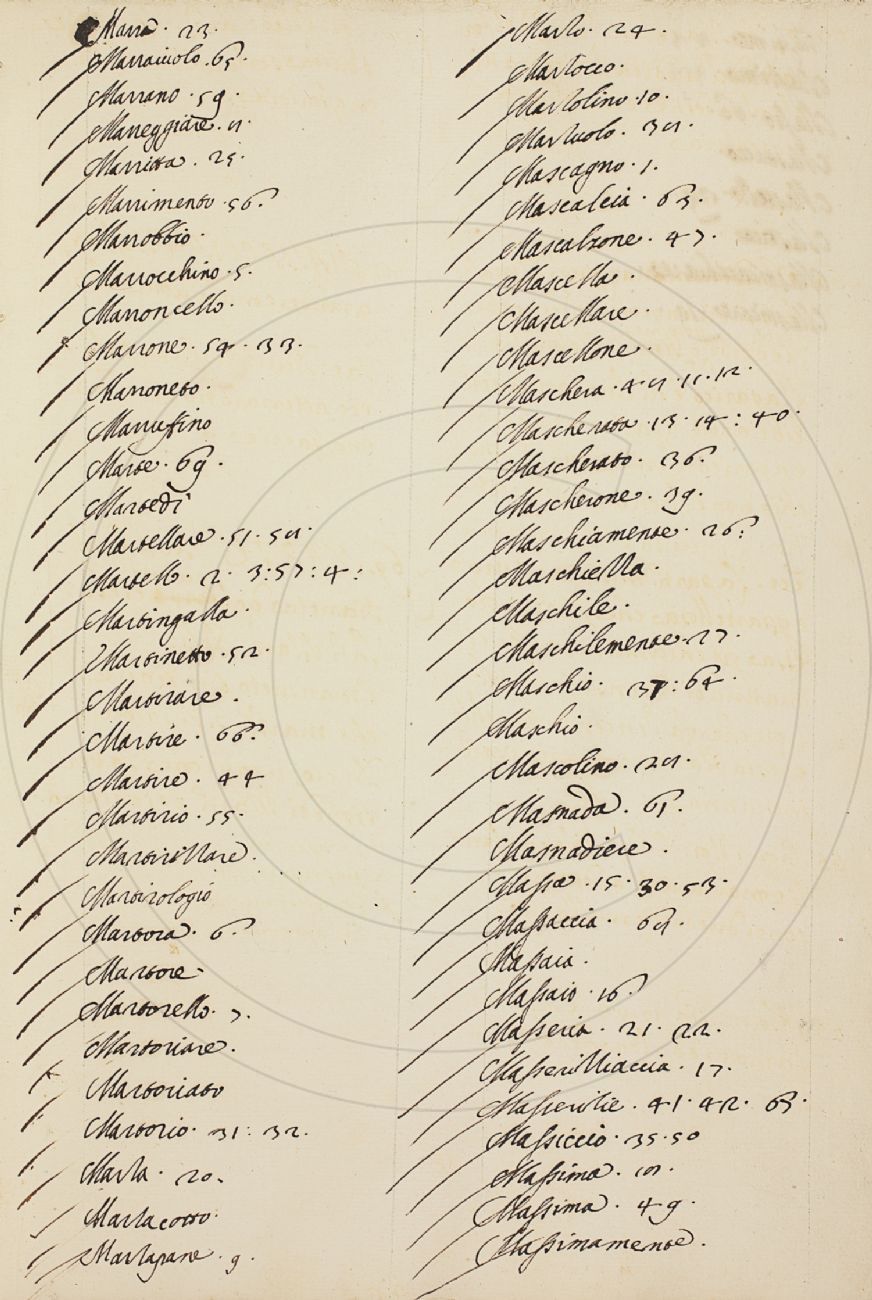 Marra. 23.
Marraiuolo. 65.
Marrano. 59.
Marreggiare. 11.
Marritta. 25.
Marrimento. 56.
Marrobbio.
Marrocchino. 5.
Marroncello.
Marrone. 54. 33.
Marroneto.
Marruffino
Marte. 69.
Martedì
Martellare. 51. 58.
Martello. 2. 3:57:4:
Martingalla.
Martinetto. 52.
Martirare.
Martire. 66.
Martire. 44
Martirio. 55.
Martirillare.
Martirologio
Martora. 6.
Martore.
Martorello. 7.
Martoriare.
Martoriato
Martorio. 31: 32.
Marza. 20.
Marzacotto.
Marzapane. 9.
Marzo. 24.
Marzocco.
Marzolino. 10.
Marzuolo. 38.
Mascagno. 1.
Mascalcia. 63.
Mascalzone. 47.
Mascella.
Mascellare.
Mascellone.
Maschera. 4. 8. 11. 12.
Mascherata. 13. 14: 40.
Mascherato. 36.
Mascherone. 39.
Maschiamente. 26.
Maschiella.
Maschile.
Maschilemente. 27.
Maschio. 37: 64.
Maschio.
Mascolino. 28.
Masnada. 61.
Masnadiere.
Massa. 15. 30. 53.
Massaccia. 68.
Massaia.
Massaio. 16.
Masseria. 21. 22.
Masseriziaccia. 17.
Masserizie. 41. 42. 63.
Massiccio. 35. 50
Massima. 18.
Massima. 49.
Massimamente.